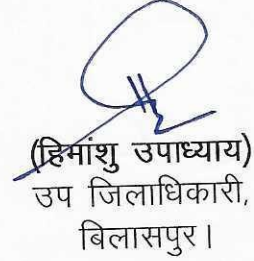 (हिमांशु उपाध्याय)
उप जिलाधिकारी,
बिलासपुर।